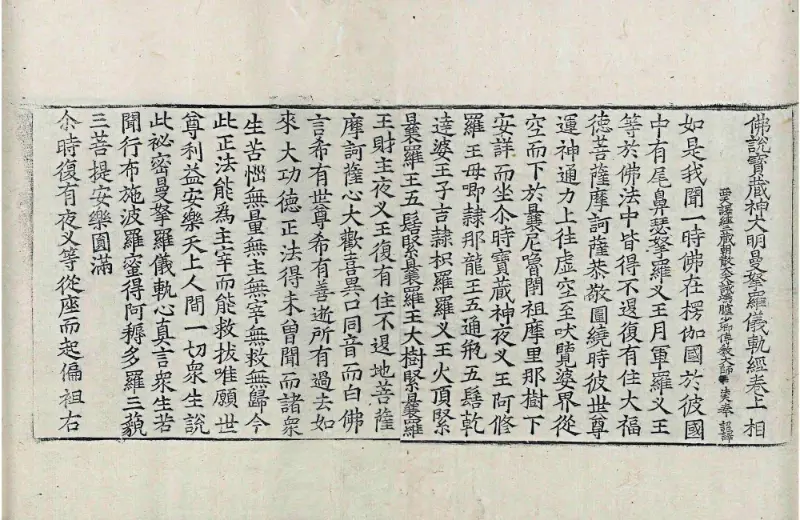 佛說寶藏神大明曼拏羅儀軌經卷上 相
西天譯經三藏朝散大夫試鴻臚少卿傳教大師臣法天奉 詔譯
如是我聞一時佛在楞伽國於彼國
中有尾鼻瑟拏羅义王月軍羅义王
等於佛法中皆得不退復有住大福
德菩薩摩訶薩恭敬圍繞時彼世尊
運神通力上往虛空至吠覽婆界從
空而下於曩尼嚕閉祖摩里那樹下
安詳而坐尒時寶藏神夜义王阿修
羅王母唧隷那龍王五通飛五髻乾
達婆王子吉隷枳羅羅义王火頂緊
曩羅王五髻緊曩羅王大樹緊曩羅
王財主夜义王復有住不退地菩薩
摩訶薩心大歡喜異口同音而白佛
言希有世尊希有善逝所有過去如
來大功德正法得未曾聞而諸衆
生苦惱無量無主無宰無救無歸今
此正法能為主宰而能救拔唯願世
尊利益安樂天上人間一切衆生說
此祕密曼拏羅儀軌心真言衆生若
聞行布施波羅蜜得阿耨多羅三藐
三菩提安樂圓滿
尒時復有夜义等從座而起偏袒右